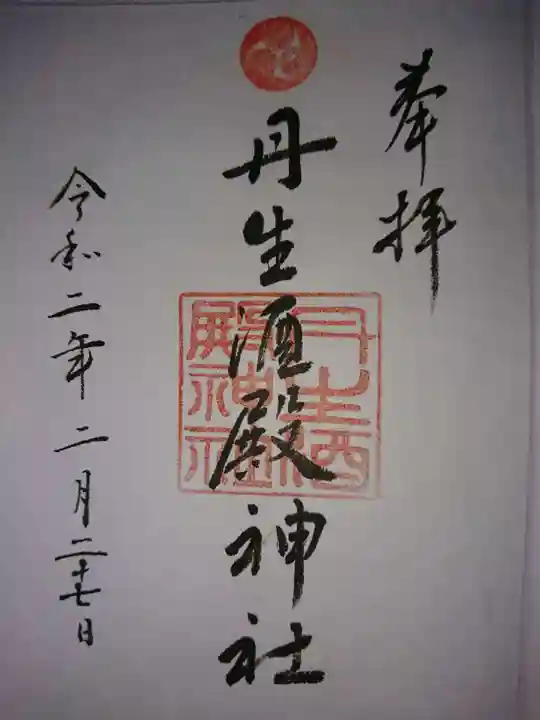 奉拝
丹生酒殿神社
丹生酒
殿神社
令和二年二月二十七日